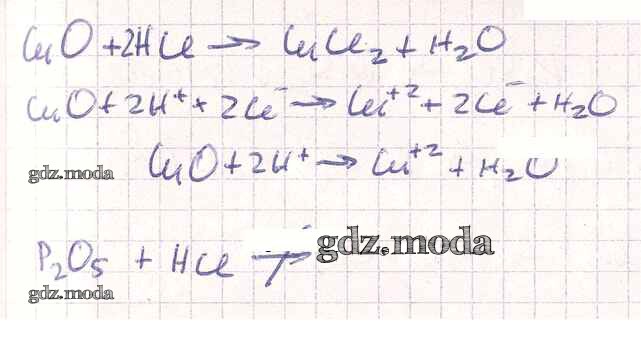 CuO + 2HCl → CuCl₂ + H₂O
CuO + 2H⁺ + 2Cl⁻ → Cu⁺² + 2Cl⁻ + H₂O
CuO + 2H⁺ → Cu⁺² + H₂O
gdz.moda
P₂O₅ + HCl ↛
gdz.moda
gdz.moda